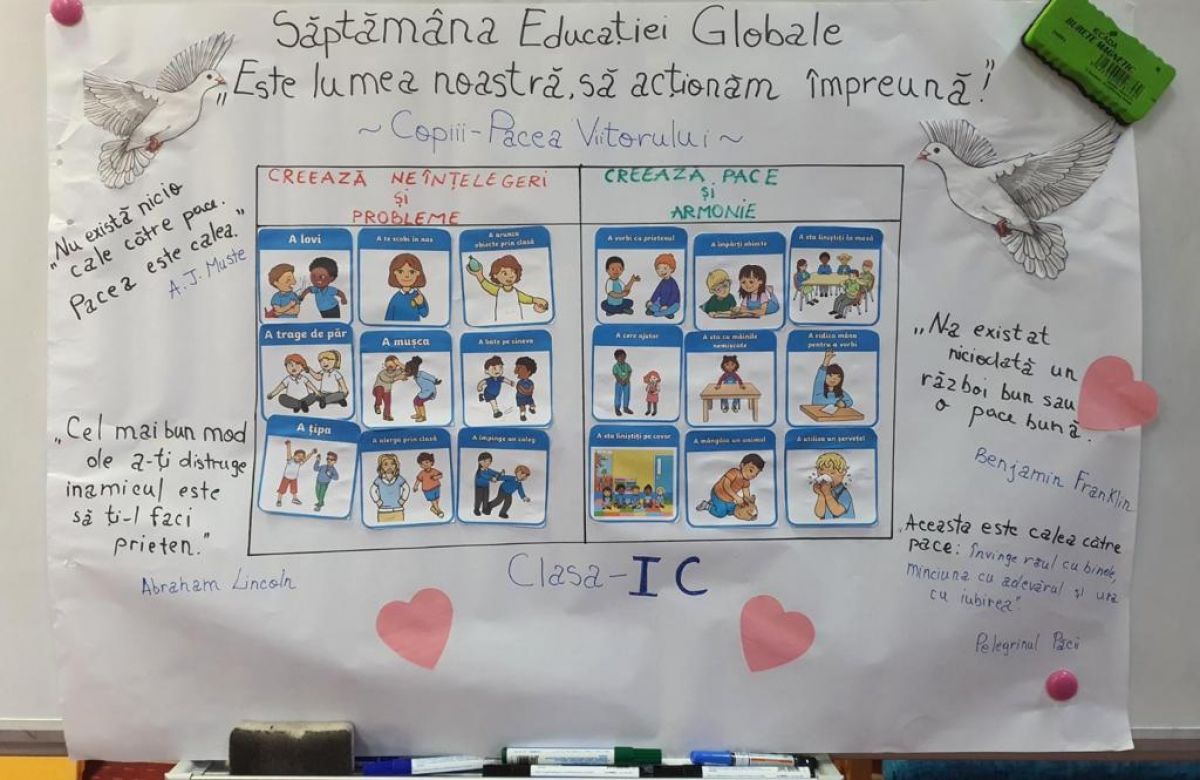 Săptămâna Educației Globale
„Este lumea noastră, să acționăm împreună!"
~ Copiii - Pacea Viitorului ~
KCADA
BURETE MAGNETIC
„Nu există nicio
cale către pace.
Pacea este calea."
A. J. Muste
„Cel mai bun mod
de a-ți distruge
inamicul este
să ți-l faci
prieten."
Abraham Lincoln
CREEAZĂ NEÎNȚELEGERI
ȘI
PROBLEME
A lovi
A te scobi în nas
A arunca
obiecte prin clasă
A trage de păr
A mușca
A bate pe cineva
A țipa
A alerga prin clasă
A împinge un coleg
CREEAZĂ PACE
ȘI
ARMONIE
A vorbi cu prietenul
A împărți obiecte
A sta liniștiți la masă
A cere ajutor
A sta cu mâinile
nemișcate
A ridica mâna
pentru a vorbi
A sta liniștiți pe covor
A mângâia un animal
A utiliza un șervețel
Clasa - I C
„N-a existat
niciodată un
război bun sau
o pace bună.
Benjamin Franklin
„Aceasta este calea către
pace: Învinge răul cu binele,
minciuna cu adevărul și ura
cu iubirea".
Pelegrinul Păcii